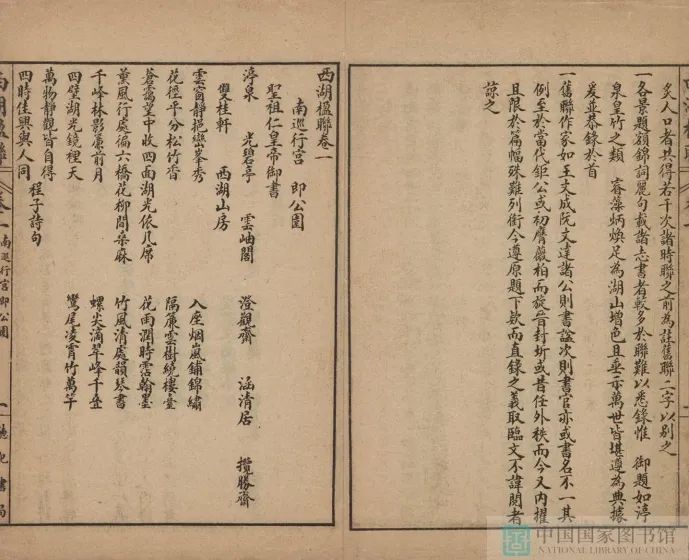 多人口者共得若干次諸時聯之前為註舊聯二字以別之
一各景題額錦詞麗句載諸志書者較多於聯難以悉錄惟 御題如渟
泉皇竹之類 睿藻炳煥足為湖山增色且垂示萬世皆堪遵為典據
爰並恭錄於首
一舊聯作家如王文成阮文達諸公則書諡次則書官亦或書名不一其
例至於當代鉅公或初膺薇柏而旋晉封圻或昔任外秩而今又內擢
且限於篇幅殊難列銜今遵原題下欵而直錄之義取臨文不諱閱者
諒之
西湖楹聯卷一
南巡行宮 即公園
聖祖仁皇帝御書
渟泉 光碧亭 雲岫閣 澄觀齋 涵清居 攬勝齋
雙桂軒 西湖山房
雲窗靜挹巒峯秀 入座烟嵐鋪錦繡
花徑平分松竹香 隔簾雲樹繞樓臺
蒼靄望中收四面湖光依几席 花雨潤時霑翰墨
薰風行處徧六橋花柳間桑麻 竹風清處韻琴書
千峰林影簾前月 螺尖滴翠峰千疊
四壁湖光鏡裡天 鸞尾凌霄竹萬竿
萬物靜觀皆自得
四時佳興與人同 程子詩句
西湖楹聯 卷一 南巡行宮即公園 一 聽記書局
中国国家图书馆
NATIONAL LIBRARY OF CHINA